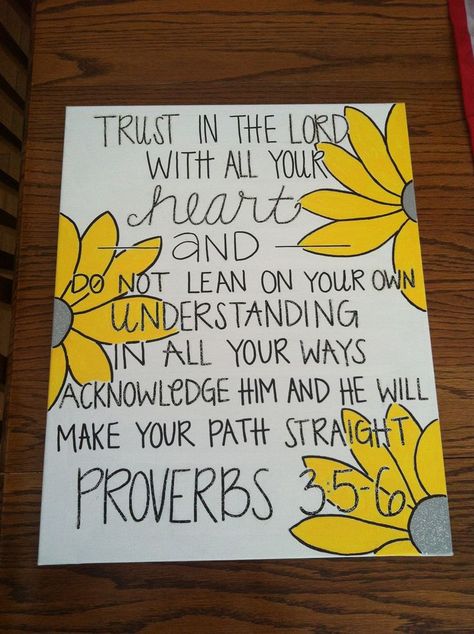 TRUST IN THE LORD
WITH ALL YOUR
heart
AND
DO NOT LEAN ON YOUR OWN
UNDERSTANDING
IN ALL YOUR WAYS
ACKNOWLEDGE HIM AND HE WILL
MAKE YOUR PATH STRAIGHT
PROVERBS 3:5-6